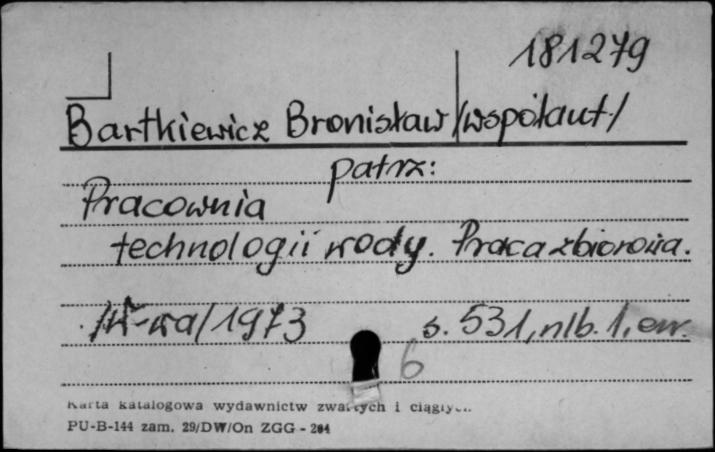 181279
Bartkiewicz Bronisław /współaut./
patrz:
Pracownia
technologii wody. Praca zbiorowa.
/W-wa/ 1973 s. 531, nlb. 1, err.
6
Karta katalogowa wydawnictw zwartych i ciągłych
PU-B-144 zam. 29/DW/On ZGG - 204